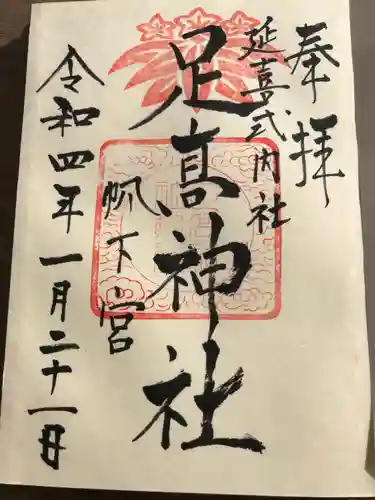 奉拝
延喜式内社
足高神社
帆下宮
令和四年一月二十一日